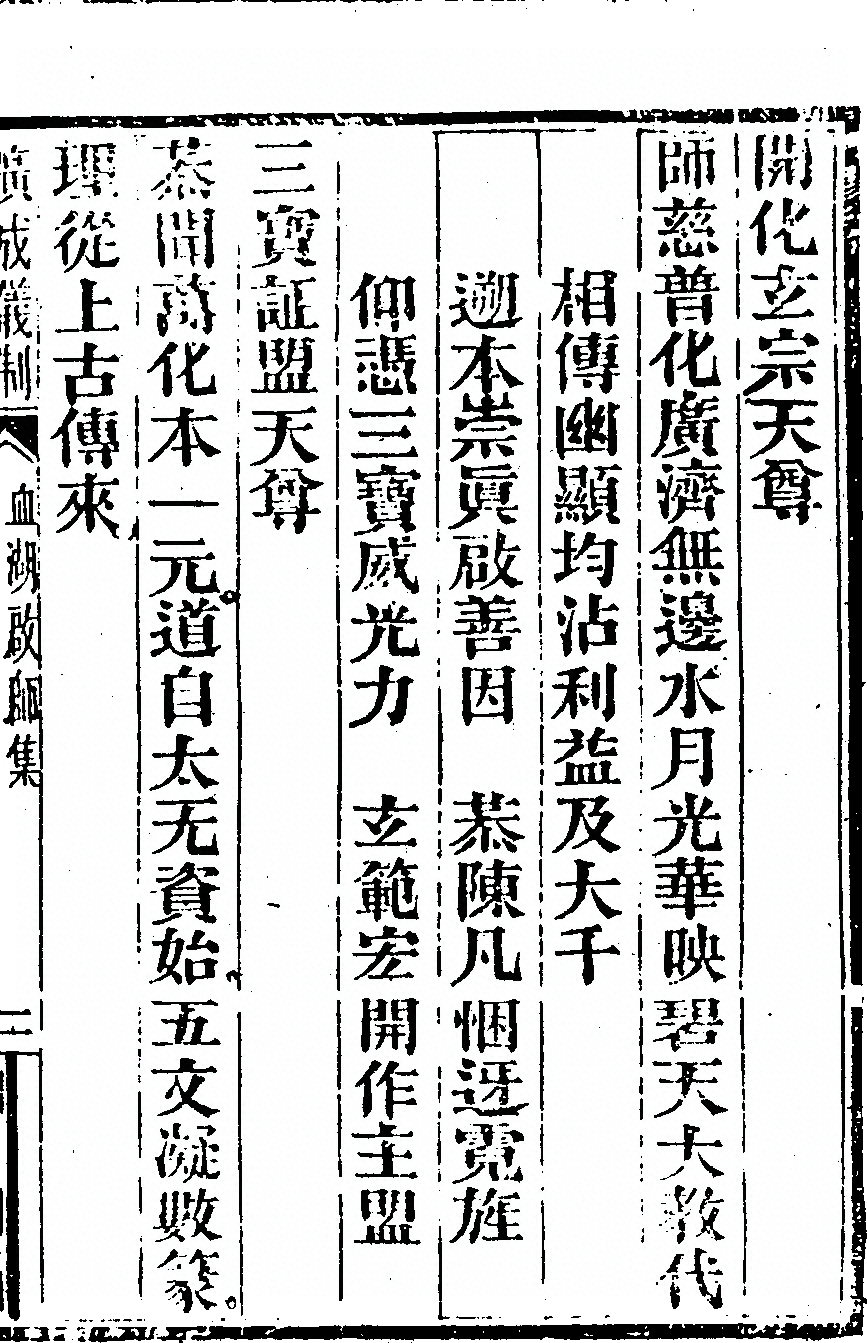 開化玄宗天尊
師慈普化廣濟無邊水月光華映碧天大教代
相傳幽顯均沾利益及大千
遡本崇眞啟善因　恭陳凡悃迓霓旌
仰憑三寶威光力　玄範宏開作主盟
三寶証盟天尊
恭聞萬化本一元。道自太无資始、五文凝數篆。
理從上古傳來、
廣成儀制　血湖啟師集　二